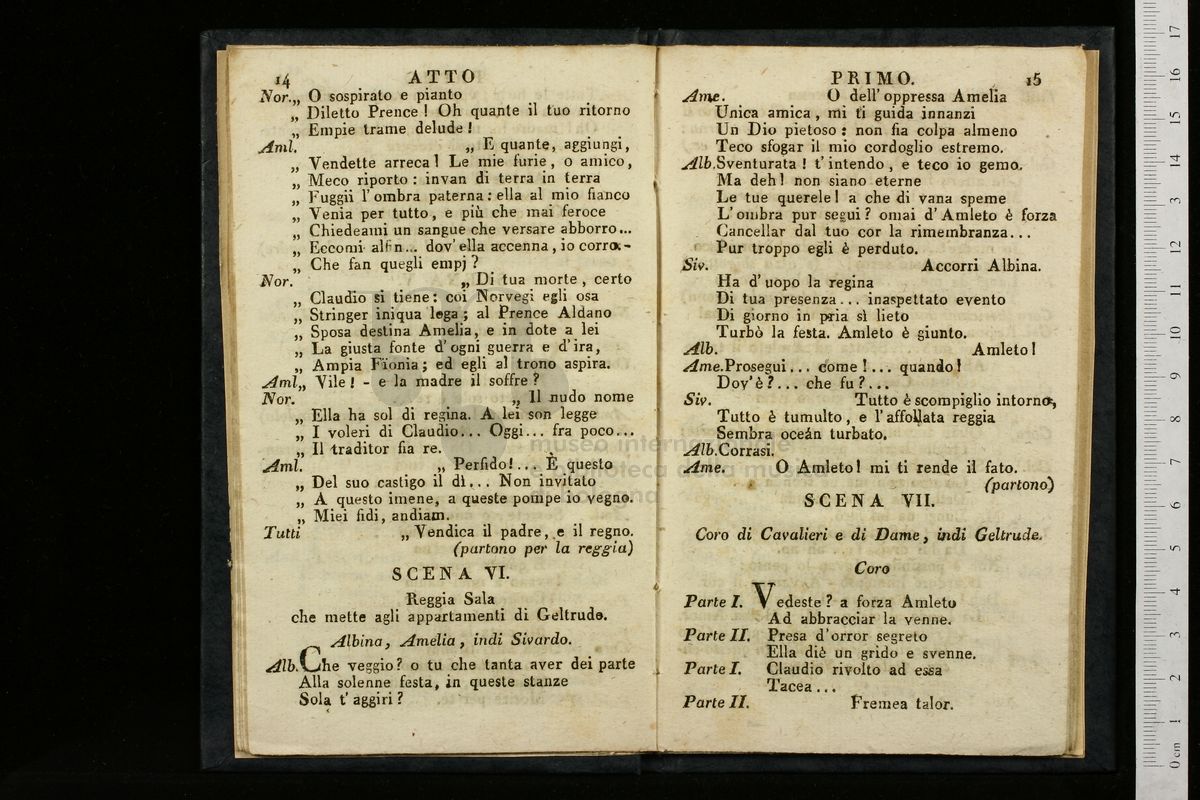 14 ATTO
Nor.„ O sospirato e pianto
„ Diletto Prence ! Oh quante il tuo ritorno
„ Empie trame delude !
Aml. „ E quante, aggiungi,
„ Vendette arreca! Le mie furie, o amico,
„ Meco riporto : invan di terra in terra
„ Fuggii l'ombra paterna : ella al mio fianco
„ Venia per tutto, e più che mai feroce
„ Chiedeami un sangue che versare abborro...
„ Eccomi alfin... dov'ella accenna, io corro.-
„ Che fan quegli empj ?
Nor. „ Di tua morte, certo
„ Claudio si tiene: coi Norvegi egli osa
„ Stringer iniqua lega ; al Prence Aldano
„ Sposa destina Amelia, e in dote a lei
„ La giusta fonte d'ogni guerra e d'ira,
„ Ampia Fionia; ed egli al trono aspira.
Aml„ Vile! - e la madre il soffre ?
Nor. „ Il nudo nome
„ Ella ha sol di regina. A lei son legge
„ I voleri di Claudio... Oggi... fra poco...
„ Il traditor fia re.
Aml. „ Perfido!... È questo
„ Del suo castigo il dì... Non invitato
„ A questo imene, a queste pompe io vegno.
„ Miei fidi, andiam.
Tutti „ Vendica il padre, e il regno.
(partono per la reggia)
SCENA VI.
Reggia Sala
che mette agli appartamenti di Geltrude.
Albina, Amelia, indi Sivardo.
Alb. Che veggio? o tu che tanta aver dei parte
Alla solenne festa, in queste stanze
Sola t'aggiri ?
PRIMO. 15
Ame. O dell'oppressa Amelia
Unica amica, mi ti guida innanzi
Un Dio pietoso : non fia colpa almeno
Teco sfogar il mio cordoglio estremo.
Alb.Sventurata ! t'intendo, e teco io gemo.
Ma deh! non siano eterne
Le tue querele! a che di vana speme
L'ombra pur segui? omai d'Amleto è forza
Cancellar dal tuo cor la rimembranza...
Pur troppo egli è perduto.
Siv. Accorri Albina.
Ha d'uopo la regina
Di tua presenza... inaspettato evento
Di giorno in pria sì lieto
Turbò la festa. Amleto è giunto.
Alb. Amleto!
Ame.Prosegui... come !... quando!
Dov'è?... che fu?...
Siv. Tutto è scompiglio intorno,
Tutto è tumulto, e l'affollata reggia
Sembra oceán turbato.
Alb.Corrasi.
Ame. O Amleto! mi ti rende il fato.
(partono)
SCENA VII.
Coro di Cavalieri e di Dame, indi Geltrude.
Coro
Parte I. Vedeste? a forza Amleto
Ad abbracciar la venne.
Parte II. Presa d'orror segreto
Ella diè un grido e svenne.
Parte I. Claudio rivolto ad essa
Tacea...
Parte II. Fremea talor.
museo internazionale
e biblioteca della musica
di bologna
0 cm 1 2 3 4 5 6 7 8 9 10 11 12 13 14 15 16 17